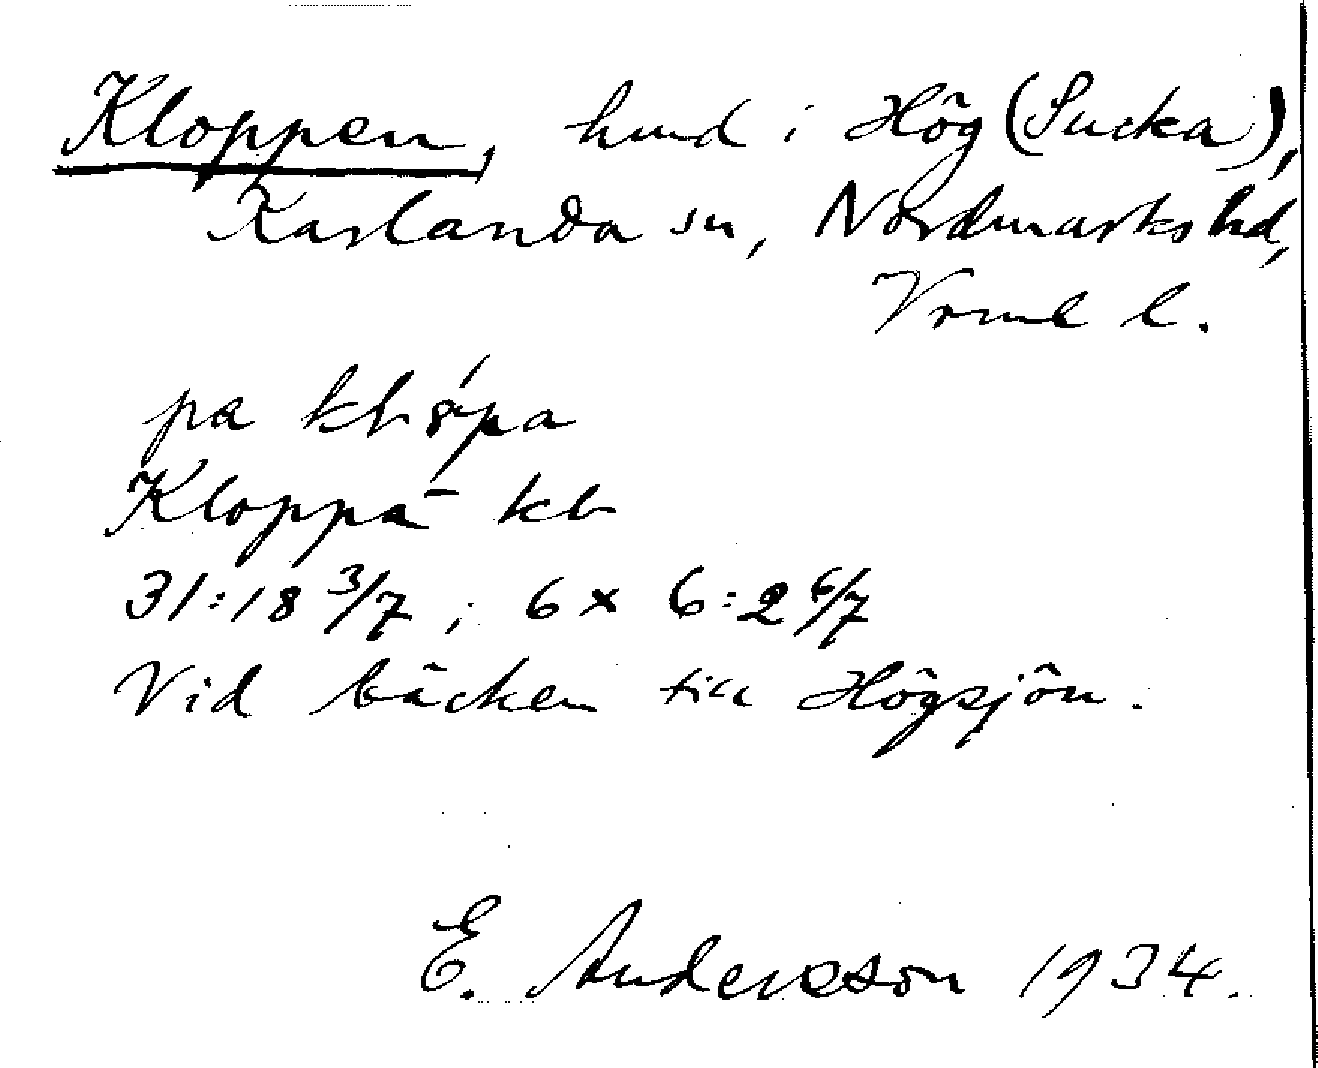 Kloppen, hmd i Hög (Sucka),
Karlanda sn, Nordmarks hd,
Vrml l.
pa
Kloppa- kb
31:18 3/7 ; 6 x 6:2 6/7
Vid bäcken till Högsjön.
E. Andersson 1934.